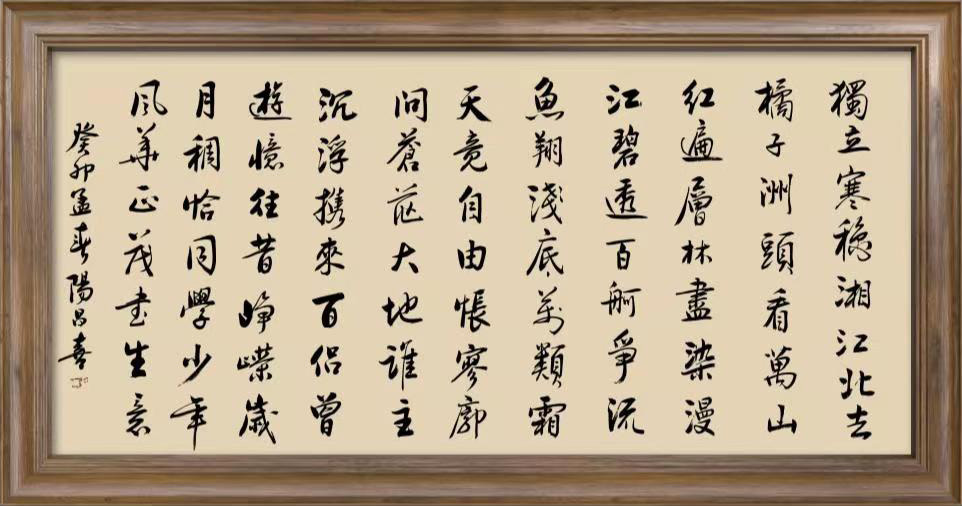 獨立寒穐湘江北去
橘子洲頭看萬山
红遍層林盡染漫
江碧透百舸爭流
魚翔淺底萬類霜
天竟自由悵寥廓
問蒼茫大地誰主
沉浮携來百侣曾
遊憶往昔崢嶸歲
月稠恰同學少年
風華正茂書生意
癸卯孟春陽昌喜